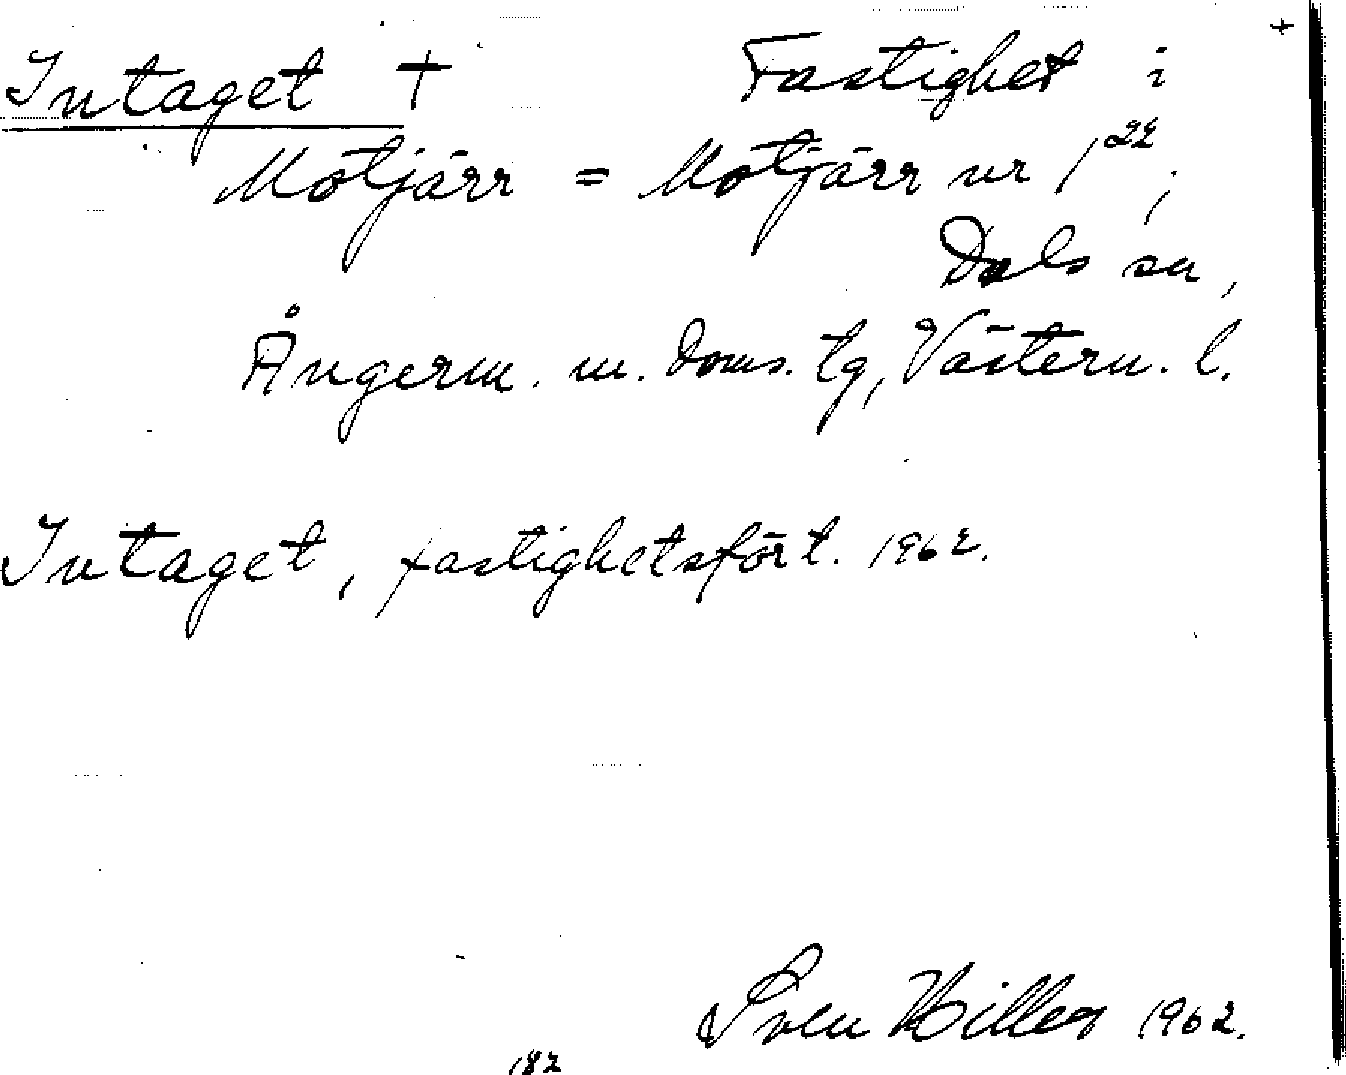 Intaget + Fastighet i
Motjärr = Motjärr nr 1²²,
Dals sn,
Ångerm. m. doms. tg, Västern. l.
Intaget, fastighetsfört. 1962.
Sven Hiller 1962.
182